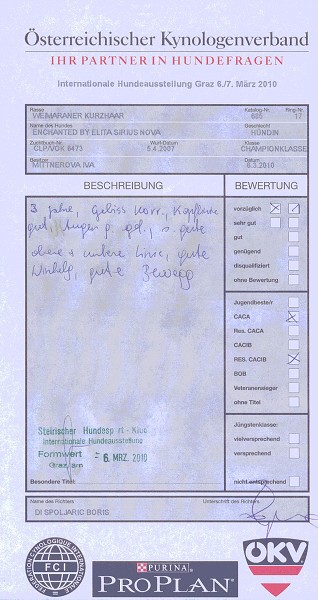 Österreichischer Kynologenverband
IHR PARTNER IN HUNDEFRAGEN
Internationale Hundeausstellung Graz 6./7. März 2010
Rasse Katalog-Nr. Ring-Nr.
WEIMARANER KURZHAAR 685 17
Name des Hundes Geschlecht
ENCHANTED BY ELITA SIRIUS NOVA HÜNDIN
Zuchtbuch-Nr. Wurf-Datum Klasse
CLP/VOK 6473 5.4.2007 CHAMPIONKLASSE
Besitzer Datum
MITTNEROVA IVA 6.3.2010
BESCHREIBUNG BEWERTUNG
3 Jahre, Gebiss korr., Kopfform
gut, Augen p. gd., s. gute
obere + untere Linie, gute
Winkelg, gute Bewegg
vorzüglich
sehr gut
gut
genügend
disqualifiziert
ohne Bewertung
Jugendbeste/r
CACA
Res. CACA
CACIB
Res. CACIB
BOB
Veteranensieger
ohne Titel
Jüngstenklasse:
vielversprechend
versprechend
nicht entsprechend
Steirischer Hundesport-Klub
Internationale Hundeausstellung
Formwert - 6. MRZ. 2010
Graz
Besondere Titel
Name des Richters Unterschrift des Richters
DI SPOLJARIC BORIS
FEDERATION CYNOLOGIQUE INTERNATIONALE
FCI
PURINA
PRO PLAN
ÖKV